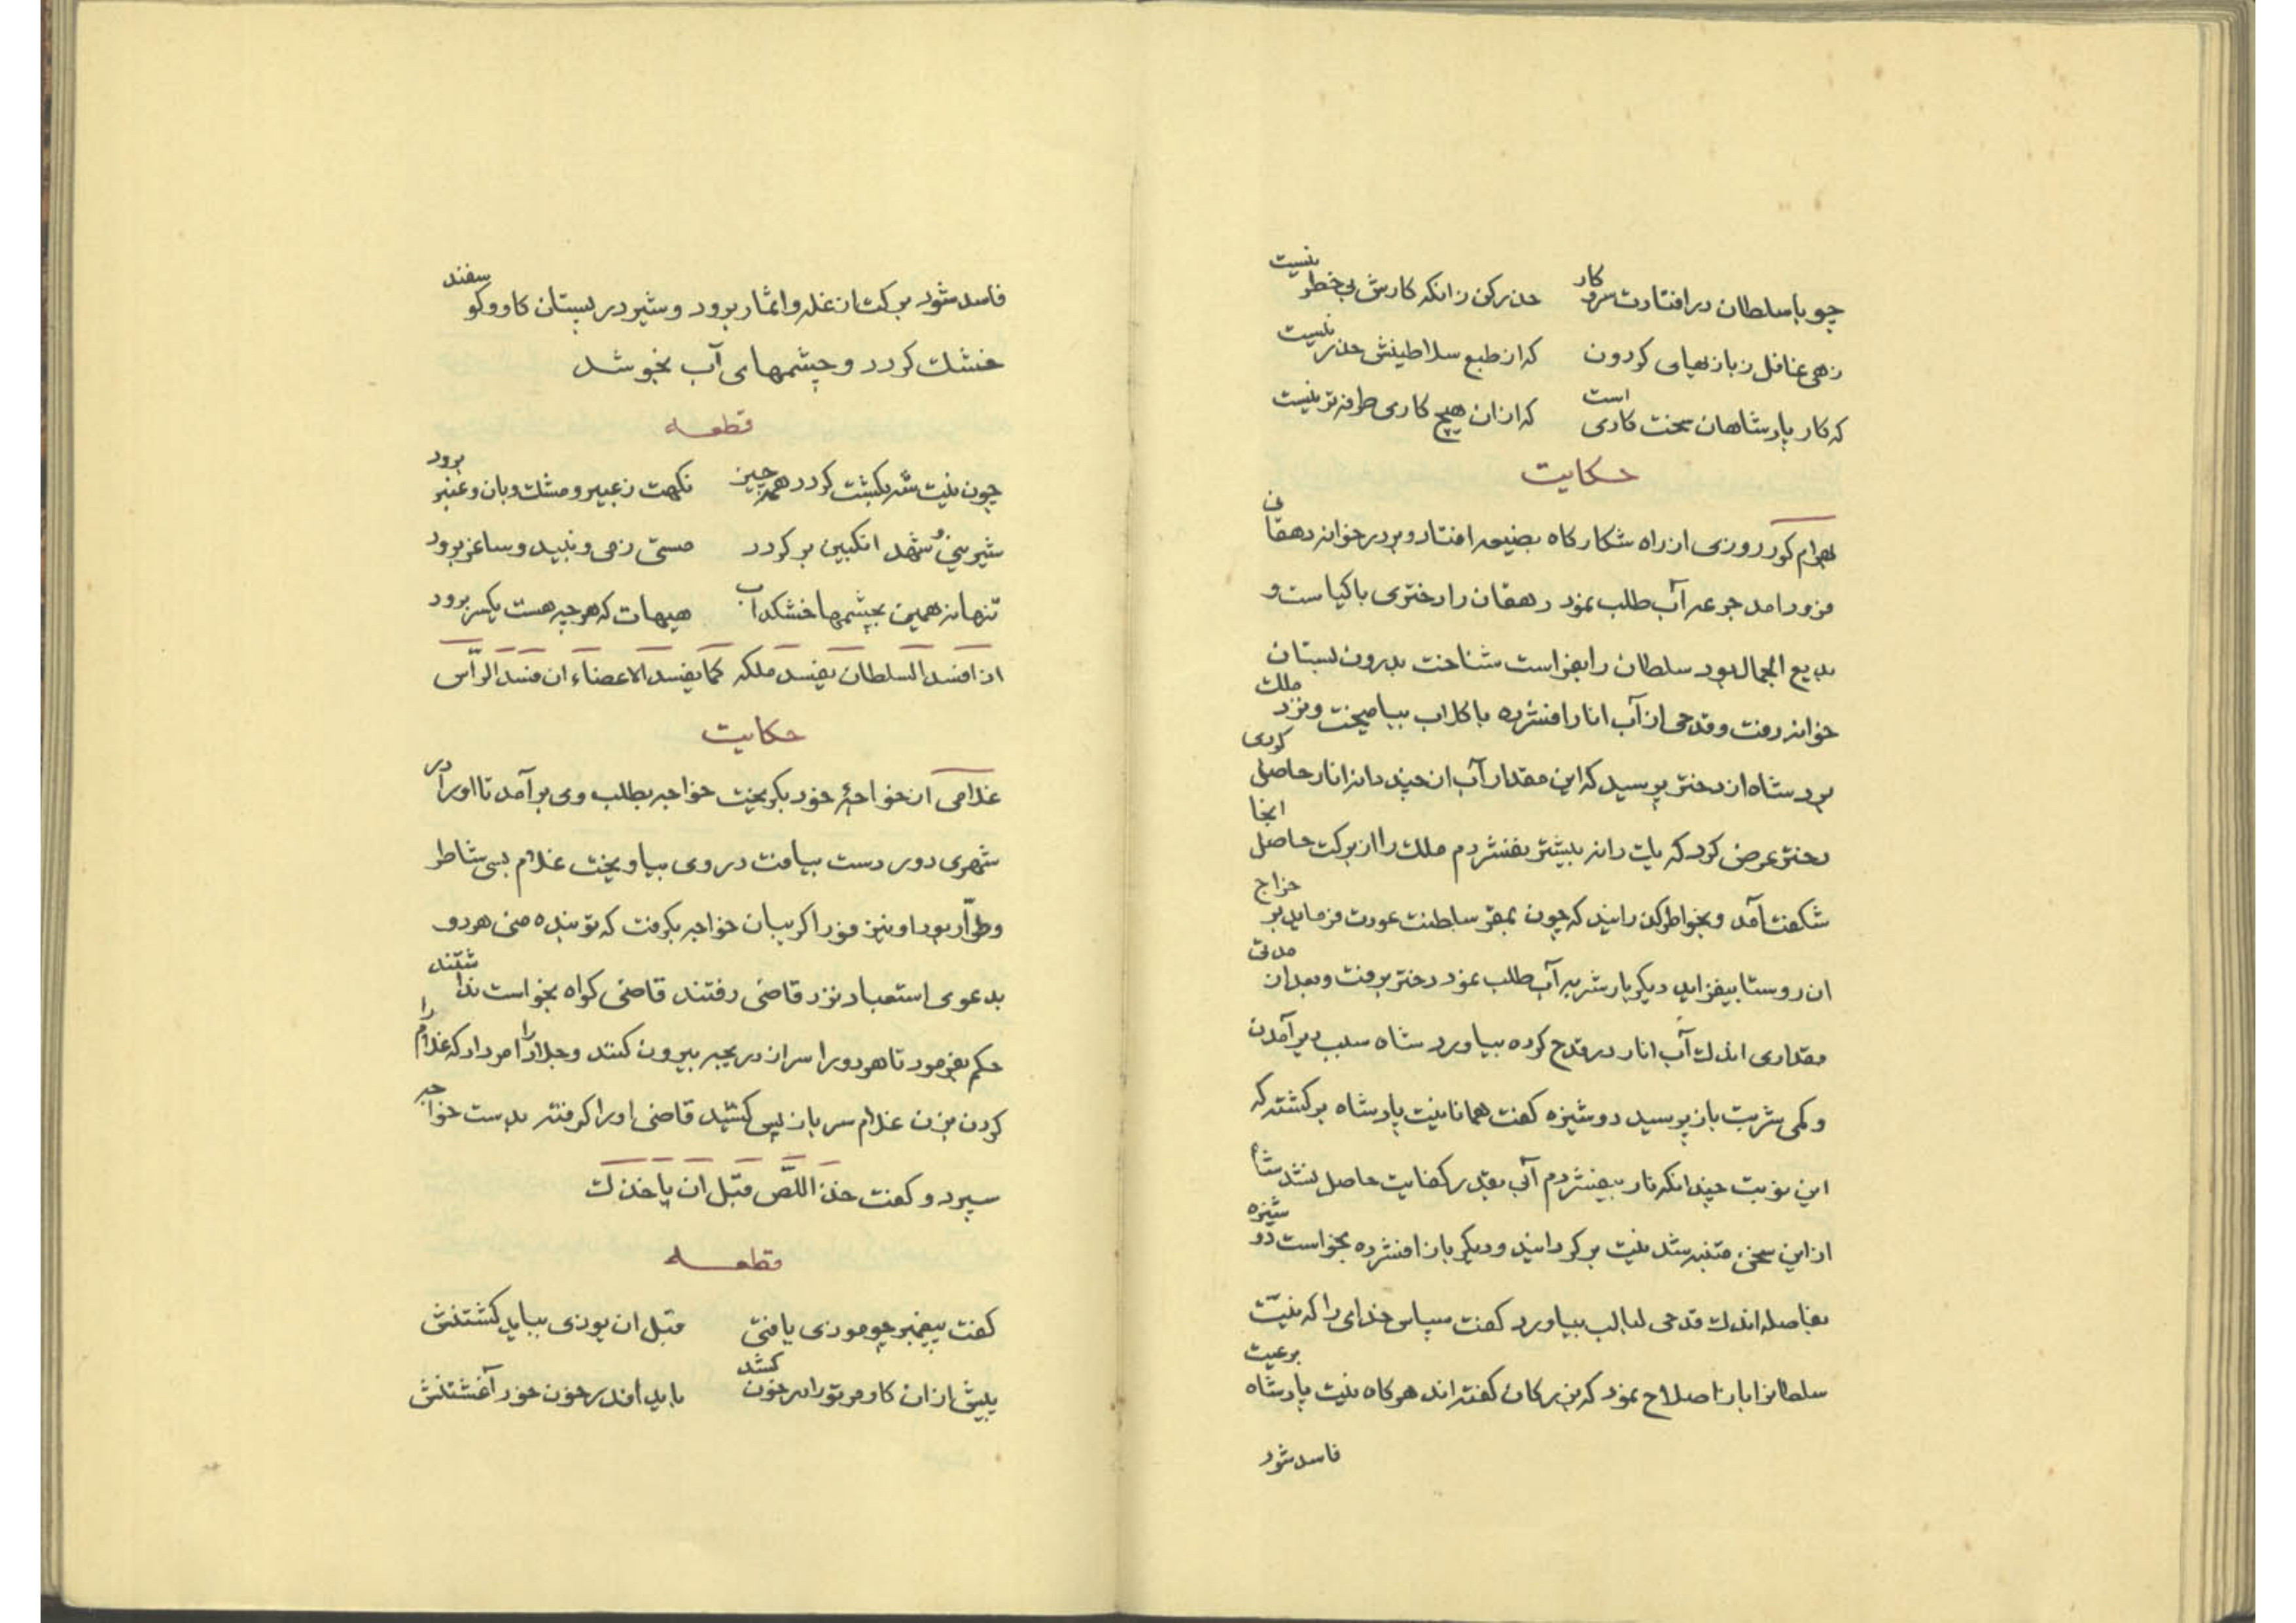 چو با سلطان درافتادت سر و کار حذر کن زانکه کارش بی خطر نیست
زهی غافل ز بازیهای کردون که از طبع سلاطینش حذر نیست
که کار پادشاهان سخت کاری است که از ان هیچ کاری طرفه تر نیست
حکایت
بهرام کور روزی از راه شکار کاه بضیعه افتاد و بدرخوانه دهقانی
فرود امد جرعه آب طلب نمود دهقان را دختری با کیاست و
بدیع الجمال بود سلطان را بفراست شناخت بدرون بستان
خوانه رفت و قدحی از آب انار افشرده با کلاب بیامیخت و نزد ملک
برد شاه از دختر پرسید که این مقدار آب از چند دانه انار حاصل کردی
دختر عرض کرد که یک دانه بیشتر نفشردم ملک را از برکت حاصل انجا
شکفت آمد و بخواطر کذرانید که چون بمقر سلطنت عودت فرماید بر خراج
ان روستا بیفزاید دیکر بار شربیر آب طلب نمود دختر برفت و بعد از مدتی
مقداری اندک آب انار در قدح کرده بیاورد شاه سبب دیر آمدن
و کمی شربت باز پرسید دوشیزه کفت همانا نیت پادشاه برکشته که
این نوبت چندانکه نار بیفشردم آبی بقدر کفایت حاصل نشد شاه
از این سخن متنبه شد نیت برکردانید و دیکر بار افشرده بخواست دوشیزه
بفاصله اندک قدحی لبالب بیاورد کفت سپاس خدای را که نیت
سلطانرا بار ناصلاح نمود که بزرکان کفته اند هر کاه نیت پادشاه بر عیت
فاسد شود
فاسد شود برکت از غله و اثمار برود و شیر در پستان کاو و کوسفند
خشک کردد و چشمهای آب بخوشد
قطعه
چون نیت شه بکشت کردد همه چیز نکهت ز عبیر و مشک و بان و عنبر برود
شیرینی و شهد انکبین بر کردد مستی ز می و نبید و ساغر برود
تنها نه همین بچشمها خشکد آب هیهات که هر چه هست یکسر برود
اذا فسد السلطان یفسد ملکه کما یفسد الاعضاء ان فسد الرّأس
حکایت
غلامی از خواجۀ خود بکریخت خواجه بطلب وی برآمد تا او را در
شهری دور دست بیافت در وی بیاویخت غلام بسی شاطر
و طرّار بود او نیز فورا کریبان خواجه بکرفت که تو بنده منی هر دو
بدعوی استعباد نزد قاضی رفتند قاضی کواه بخواست نداشتند
حکم بفرمود تا هر دو را سر از دریچه بیرون کنند و جلاد را امر داد که غلام را
کردن بزن غلام سر باز پس کشید قاضی او را کرفته بدست خواجه
سپرد و کفت خذ اللّصّ قبل ان یاخذک
قطعه
کفت پیغمبر چو موذی یافتی قبل ان یوذی بباید کشتنش
پیش از ان کاو مر تو را در خون کشد باید اندر خون خود آغشتنش